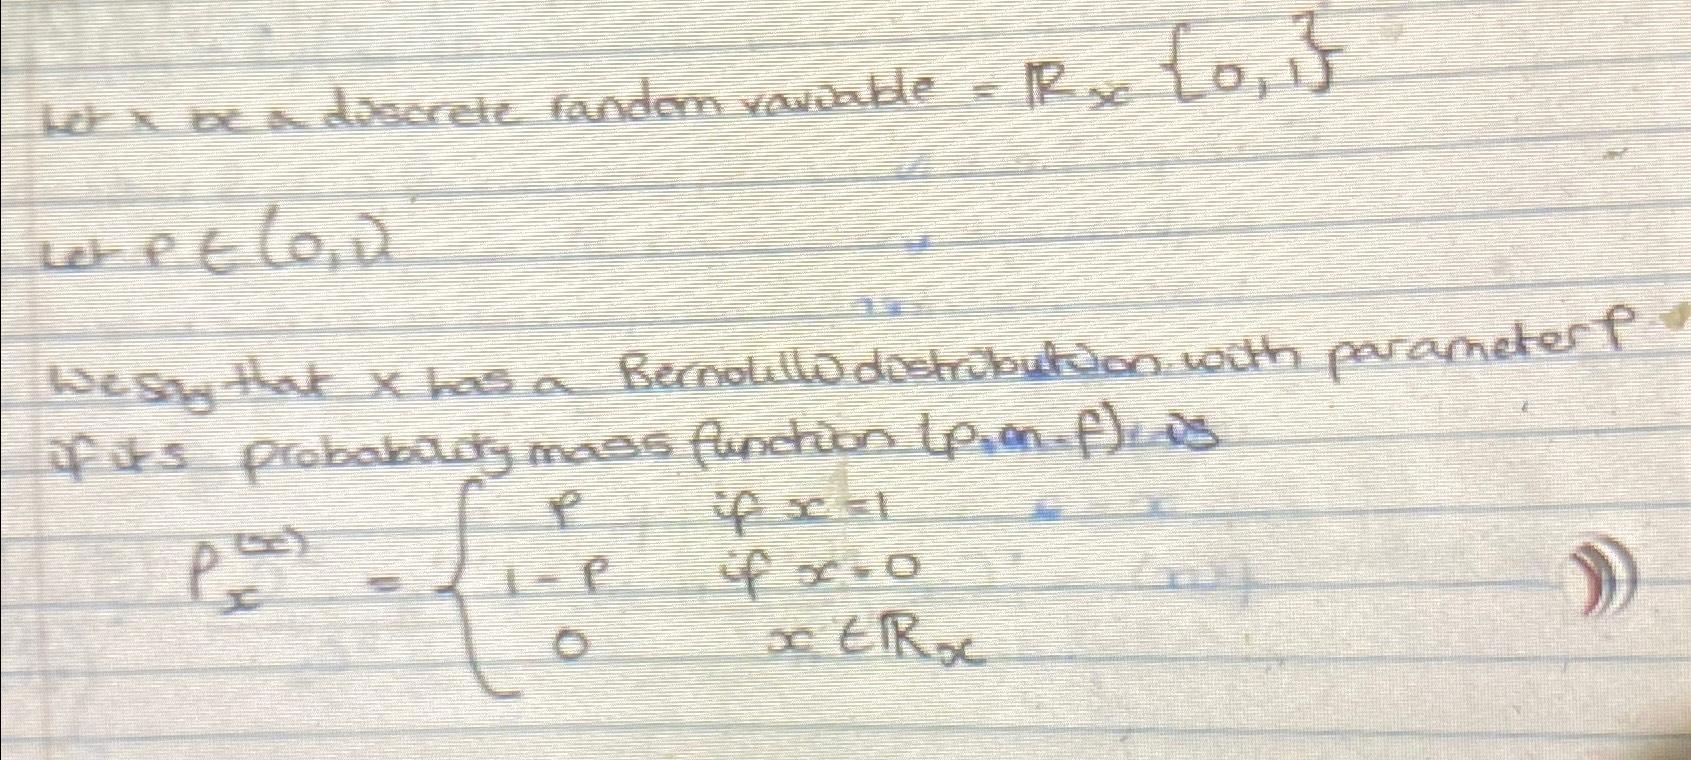 Let x be a discrete random variable = ℝx {0,1}
Let P ∈ (0,1)
We say that x has a Bernoulli distribution with parameter P
if its probability mass function (p.m.f). is
Px(x) = { P if x=1
1-P if x=0
0 x ∈ ℝx